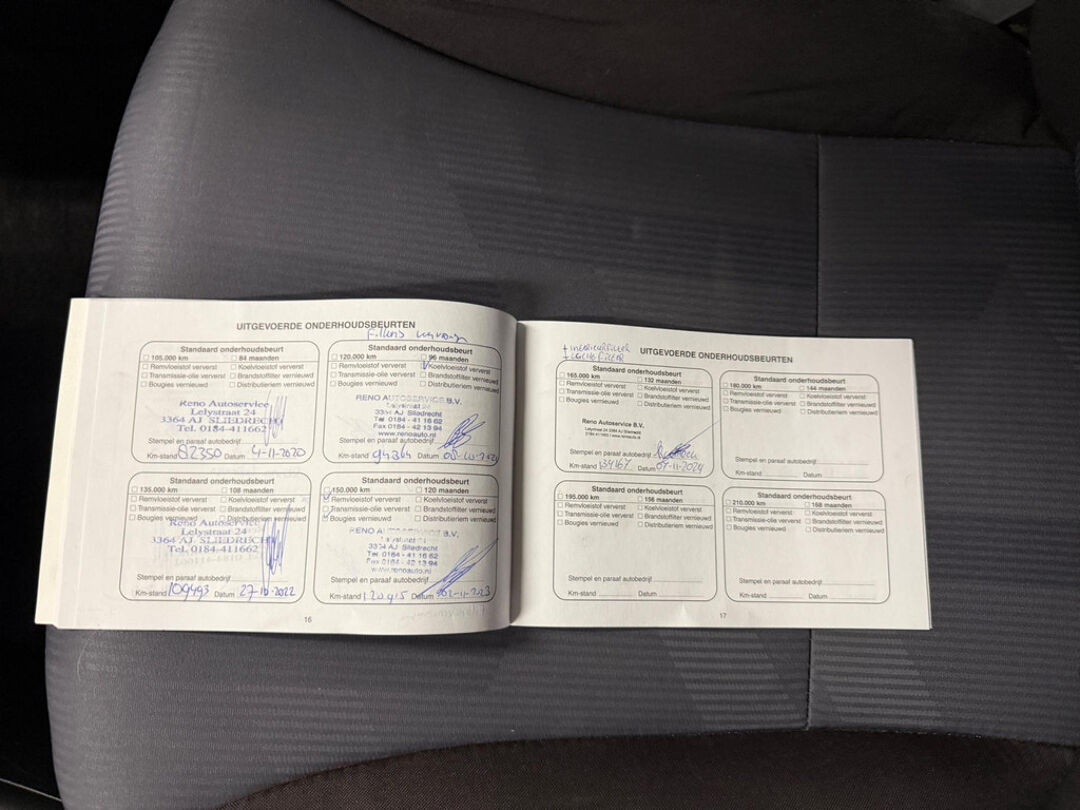 UITGEVOERDE ONDERHOUDSBEURTEN
Standaard onderhoudsbeurt
105.000 km 84 maanden
Remvloeistof ververst Koelvloeistof ververst
Transmissie-olie ververst Brandstoffilter vernieuwd
Bougies vernieuwd Distributieriem vernieuwd
Reno Autoservice
Lelystraat 24
3364 AJ SLIEDRECHT
Tel. 0184-411662
Stempel en paraaf autobedrijf
Km-stand 82350 Datum 4-11-2020
Standaard onderhoudsbeurt
120.000 km 96 maanden
Remvloeistof ververst Koelvloeistof ververst
Transmissie-olie ververst Brandstoffilter vernieuwd
Bougies vernieuwd Distributieriem vernieuwd
RENO AUTOSERVICE B.V.
Lelystraat 24
3364 AJ Sliedrecht
Tel 0184 - 41 16 62
Fax 0184 - 42 13 94
www.renoauto.nl
Stempel en paraaf autobedrijf
Km-stand Datum
Standaard onderhoudsbeurt
135.000 km 108 maanden
Remvloeistof ververst Koelvloeistof ververst
Transmissie-olie ververst Brandstoffilter vernieuwd
Bougies vernieuwd Distributieriem vernieuwd
Reno Autoservice
Lelystraat 24
3364 AJ SLIEDRECHT
Tel. 0184-411662
Stempel en paraaf autobedrijf
Km-stand 109493 Datum 27-10-2022
Standaard onderhoudsbeurt
150.000 km 120 maanden
Remvloeistof ververst Koelvloeistof ververst
Transmissie-olie ververst Brandstoffilter vernieuwd
Bougies vernieuwd Distributieriem vernieuwd
RENO AUTOSERVICE B.V.
Lelystraat 24
3364 AJ Sliedrecht
Tel 0184 - 41 16 62
Fax 0184 - 42 13 94
www.renoauto.nl
Stempel en paraaf autobedrijf
Km-stand 120915 Datum 02-11-2023
16
+ INTERIEURFILTER
+ LUCHTFILTER
UITGEVOERDE ONDERHOUDSBEURTEN
Standaard onderhoudsbeurt
165.000 km 132 maanden
Remvloeistof ververst Koelvloeistof ververst
Transmissie-olie ververst Brandstoffilter vernieuwd
Bougies vernieuwd Distributieriem vernieuwd
Reno Autoservice B.V.
Lelystraat 24 3364 AJ Sliedrecht
0184 411662 / www.renoauto.nl
Stempel en paraaf autobedrijf
Km-stand 134167 Datum 07-11-2024
Standaard onderhoudsbeurt
180.000 km 144 maanden
Remvloeistof ververst Koelvloeistof ververst
Transmissie-olie ververst Brandstoffilter vernieuwd
Bougies vernieuwd Distributieriem vernieuwd
Stempel en paraaf autobedrijf
Km-stand Datum
Standaard onderhoudsbeurt
195.000 km 156 maanden
Remvloeistof ververst Koelvloeistof ververst
Transmissie-olie ververst Brandstoffilter vernieuwd
Bougies vernieuwd Distributieriem vernieuwd
Stempel en paraaf autobedrijf
Km-stand Datum
Standaard onderhoudsbeurt
210.000 km 168 maanden
Remvloeistof ververst Koelvloeistof ververst
Transmissie-olie ververst Brandstoffilter vernieuwd
Bougies vernieuwd Distributieriem vernieuwd
Stempel en paraaf autobedrijf
Km-stand Datum
17